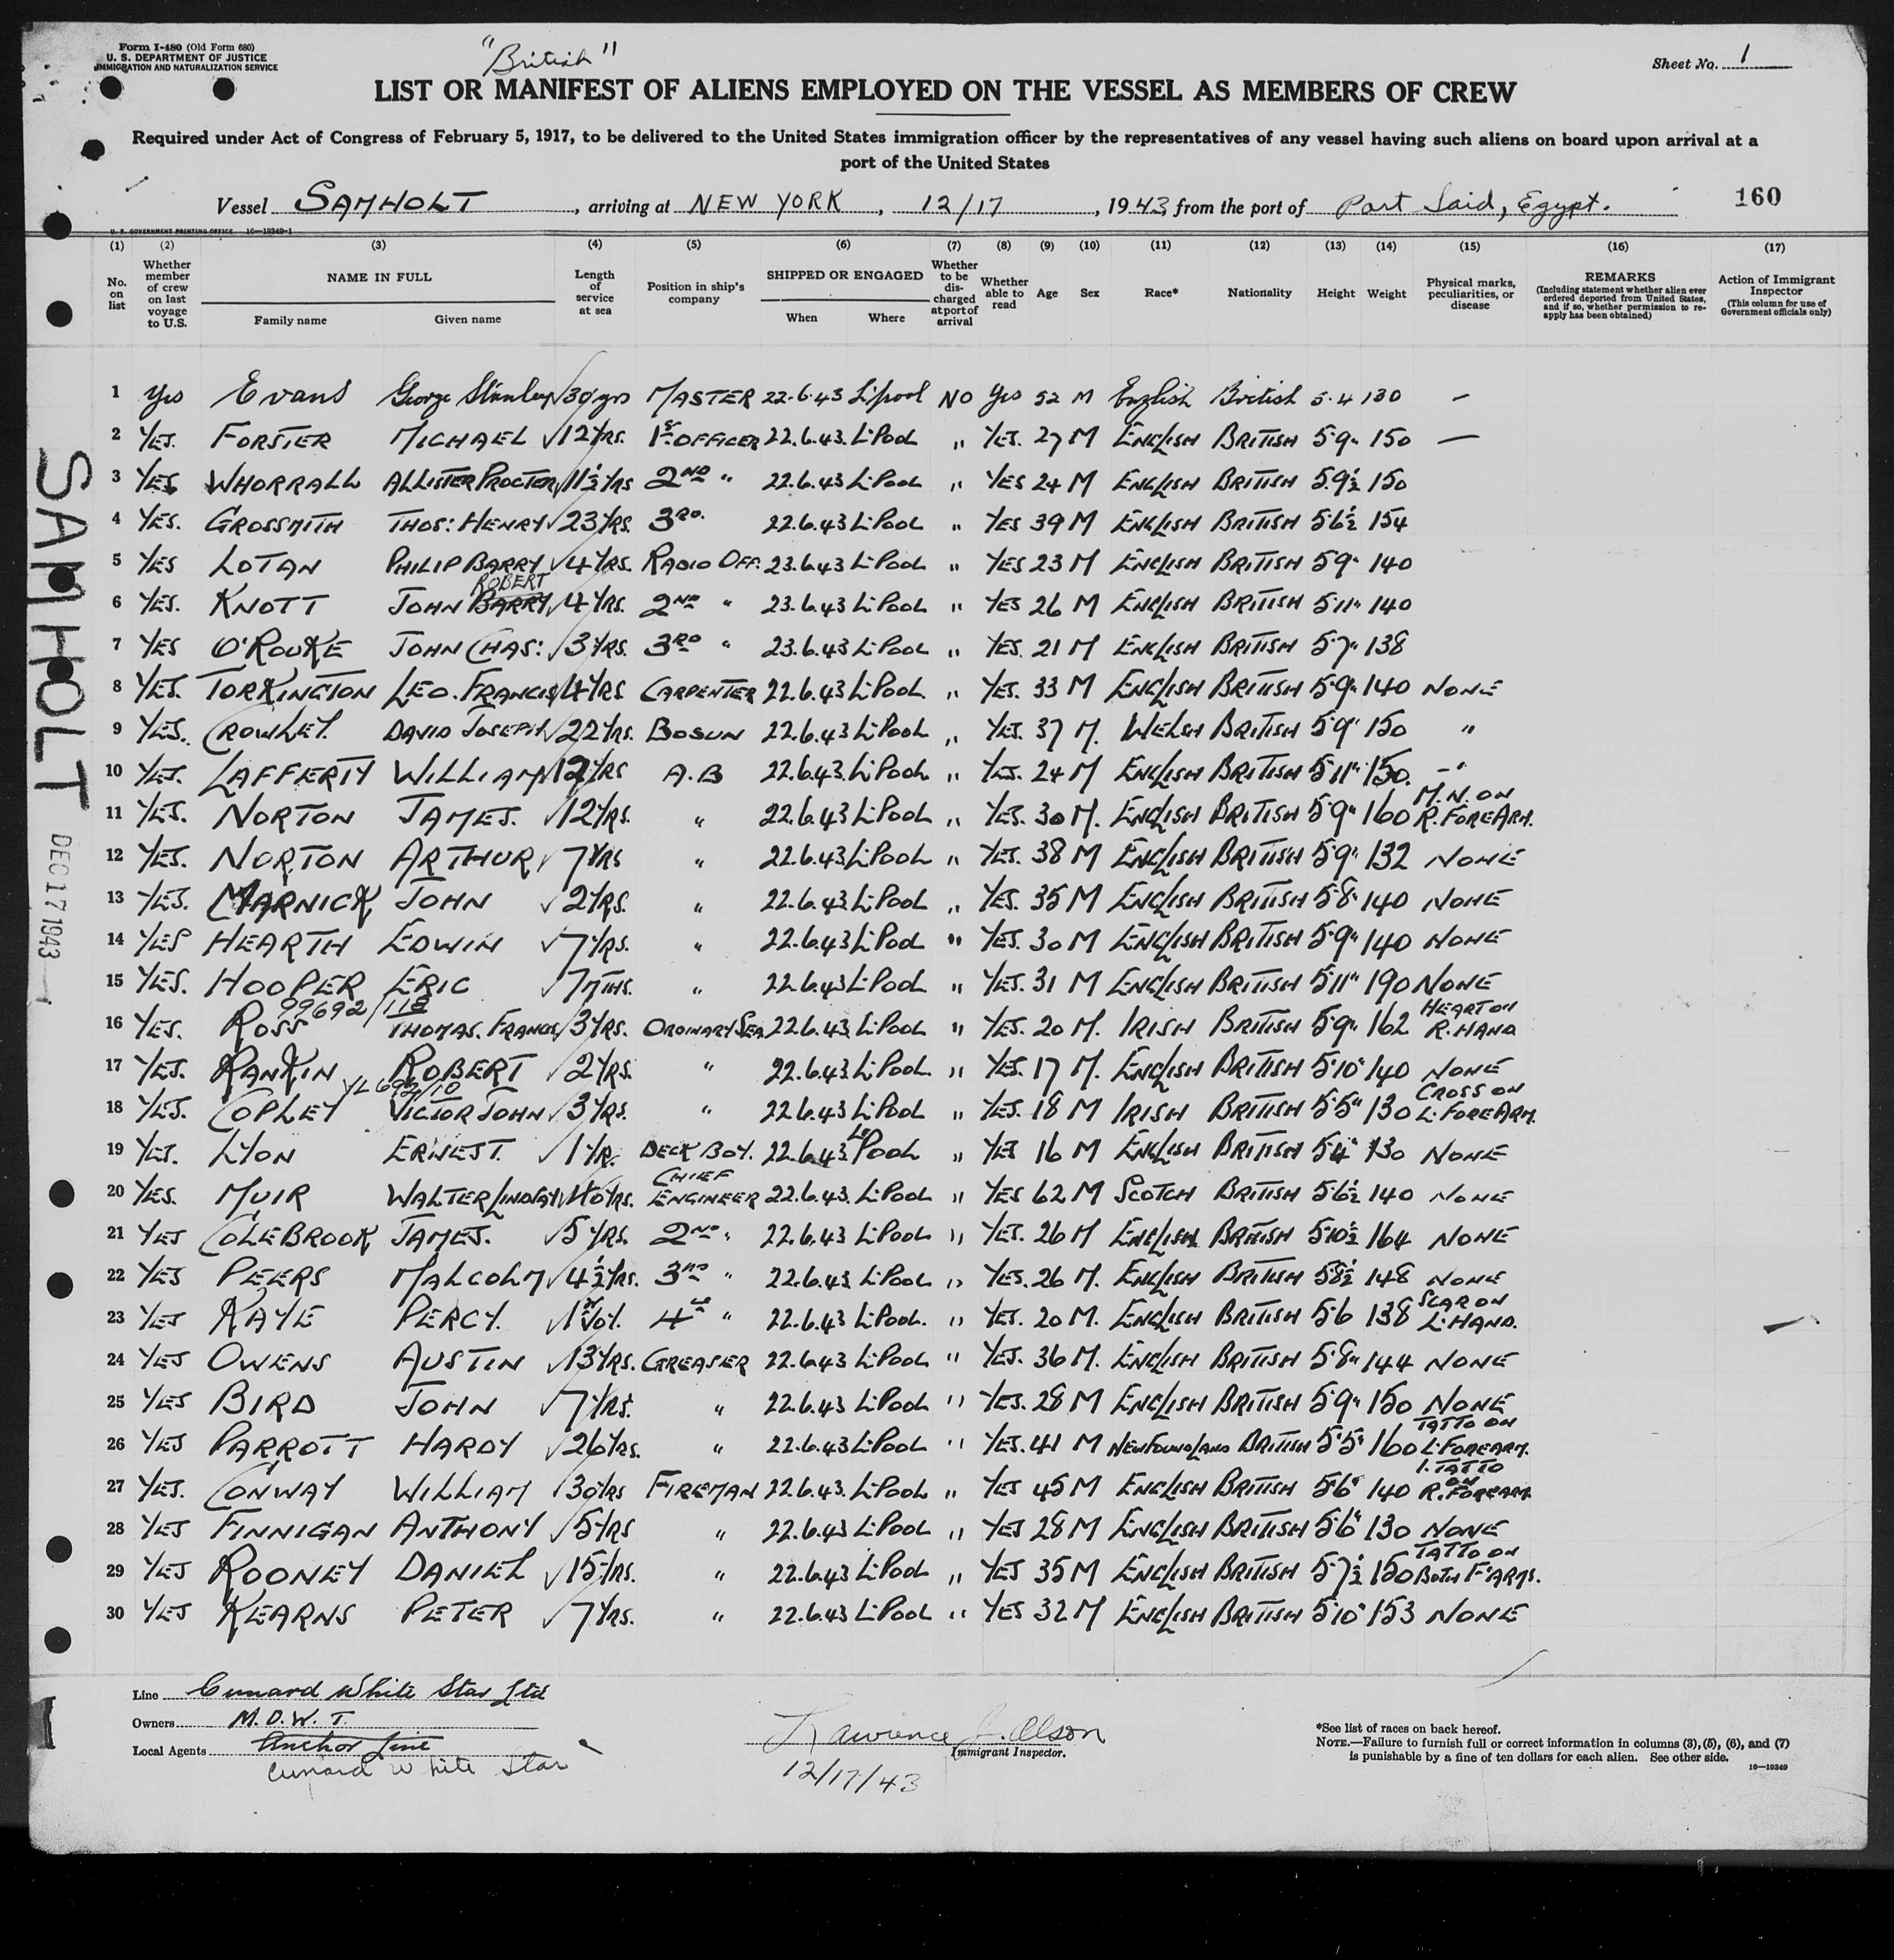 Form I-480 (Old Form 680)
U. S. DEPARTMENT OF JUSTICE
IMMIGRATION AND NATURALIZATION SERVICE
"British"
Sheet No. 1
LIST OR MANIFEST OF ALIENS EMPLOYED ON THE VESSEL AS MEMBERS OF CREW
Required under Act of Congress of February 5, 1917, to be delivered to the United States immigration officer by the representatives of any vessel having such aliens on board upon arrival at a
port of the United States
Vessel SAMHOLT, arriving at NEW YORK, 12/17, 1943 from the port of Port Said, Egypt. 160
U. S. GOVERNMENT PRINTING OFFICE 16—19349-1
(1) (2) (3) (4) (5) (6) (7) (8) (9) (10) (11) (12) (13) (14) (15) (16) (17)
No. on list
Whether member of crew on last voyage to U.S.
NAME IN FULL
Family name Given name
Length of service at sea
Position in ship's company
SHIPPED OR ENGAGED
When Where
Whether to be discharged at port of arrival
Whether able to read
Age Sex Race* Nationality Height Weight
Physical marks, peculiarities, or disease
REMARKS
(Including statement whether alien ever ordered deported from United States, and if so, whether permission to re-apply has been obtained)
Action of Immigrant Inspector
(This column for use of Government officials only)
1 Yes Evans George Stanley 30 yrs MASTER 22.6.43 L'pool NO Yes 52 M English British 5.4 130 —
2 YES. FORSTER MICHAEL 12 YRS. 1ST OFFICER 22.6.43. L'POOL " YES. 27 M ENGLISH BRITISH 5.9" 150 —
3 YES WHORRALL ALLISTER PROCTER 11½ YRS 2ND " 22.6.43 L'POOL " YES 24 M ENGLISH BRITISH 5.9½ 150
4 YES. GROSSMITH THOS: HENRY 23 YRS. 3RD. 22.6.43 L'POOL " YES 39 M ENGLISH BRITISH 5.6½ 154
5 YES LOTAN PHILIP BARRY 4 YRS. RADIO OFF. 23.6.43 L'POOL " YES 23 M ENGLISH BRITISH 5 9" 140
6 YES. KNOTT JOHN BARRY ROBERT 4 YRS. 2ND " 23.6.43 L'POOL " YES 26 M ENGLISH BRITISH 5.11" 140
7 YES O'ROUKE JOHN CHAS: 3 YRS. 3RD " 23.6.43 L'POOL " YES. 21 M ENGLISH BRITISH 5.7" 138
8 YES. TORKINGTON LEO. FRANCIS 4 YRS CARPENTER 22.6.43 L'POOL " YES. 33 M ENGLISH BRITISH 5.9" 140 NONE
9 YES. CROWLEY. DAVID JOSEPH 22 YRS. BOSUN 22.6.43 L'POOL " YES. 37 M. WELSH BRITISH 5.9" 150 "
10 YES. LAFFERTY WILLIAM 12 YRS A.B 22.6.43. L'POOL " YES. 24 M ENGLISH BRITISH 5.11" 150. "
11 YES. NORTON JAMES. 12 YRS. " 22.6.43 L'POOL " YES. 30 M. ENGLISH BRITISH 5.9" 160 M.N. ON R. FOREARM.
12 YES. NORTON ARTHUR 7 YRS " 22.6.43 L'POOL " YES. 38 M ENGLISH BRITISH 5.9" 132 NONE
13 YES. MARNICK JOHN 2 YRS. " 22.6.43 L'POOL " YES. 35 M ENGLISH BRITISH 5.8" 140 NONE
14 YES HEARTH EDWIN 7 YRS. " 22.6.43 L'POOL " YES. 30 M ENGLISH BRITISH 5.9" 140 NONE
15 YES. HOOPER ERIC 7 MTHS. " 22.6.43 L'POOL " YES. 31 M ENGLISH BRITISH 5.11" 190 NONE
99692/118
16 YES. ROSS THOMAS. FRANCIS 3 YRS. ORDINARY SEA. 22.6.43. L'POOL " YES. 20 M. IRISH BRITISH 5.9" 162 HEART ON R. HAND
17 YES. RANKIN ROBERT 2 YRS. " 22.6.43. L'POOL " YES. 17 M. ENGLISH BRITISH 5.10" 140 NONE
18 YES. COPLEY VICTOR JOHN 3 YRS. " 22.6.43 L'POOL " YES. 18 M IRISH BRITISH 5.5" 130 CROSS ON L. FOREARM.
19 YES. LYON ERNEST. 1 YR. DECK BOY. 22.6.43 L'POOL " YES 16 M ENGLISH BRITISH 5.4" 130 NONE
20 YES. MUIR WALTER LINDSAY 40 YRS. CHIEF ENGINEER 22.6.43. L'POOL " YES 62 M SCOTCH BRITISH 5.6½ 140 NONE
21 YES COLEBROOK JAMES. 5 YRS. 2ND " 22.6.43 L'POOL " YES. 26 M ENGLISH BRITISH 5.10½ 164 NONE
22 YES PEERS MALCOLM 4½ YRS. 3RD " 22.6.43 L'POOL " YES. 26 M. ENGLISH BRITISH 5.8½ 148 NONE
23 YES KAYE PERCY. 1ST VOY. 4TH " 22.6.43 L'POOL. " YES. 20 M. ENGLISH BRITISH 5.6 138 SCAR ON L. HAND.
24 YES OWENS AUSTIN 13 YRS. GREASER 22.6.43 L'POOL " YES. 36 M. ENGLISH BRITISH 5.8" 144 NONE
25 YES BIRD JOHN 7 YRS. " 22.6.43 L'POOL " YES. 28 M ENGLISH BRITISH 5.9" 150 NONE
26 YES PARROTT HARDY 26 YRS. " 22.6.43 L'POOL " YES. 41 M NEWFOUNDLAND BRITISH 5.5" 160 TATTO ON L. FOREARM.
27 YES. CONWAY WILLIAM 30 YRS FIREMAN 22.6.43. L'POOL " YES 45 M ENGLISH BRITISH 5.6" 140 1. TATTO ON R. FOREARM
28 YES FINNIGAN ANTHONY 5 YRS " 22.6.43 L'POOL " YES 28 M ENGLISH BRITISH 5.6" 130 NONE
29 YES ROONEY DANIEL 15 YRS. " 22.6.43 L'POOL " YES 35 M ENGLISH BRITISH 5.7½ 150 TATTO ON BOTH F'ARMS.
30 YES KEARNS PETER 7 YRS. " 22.6.43 L'POOL " YES 32 M ENGLISH BRITISH 5.10" 153 NONE
SAMHOLT
DEC 17 1943
Line Cunard White Star Ltd
Owners M.O.W.T.
Local Agents Anchor Line
Cunard White Star
Lawrence J. Olson
Immigrant Inspector.
12/17/43
*See list of races on back hereof.
NOTE.—Failure to furnish full or correct information in columns (3), (5), (6), and (7)
is punishable by a fine of ten dollars for each alien. See other side.
16—19349